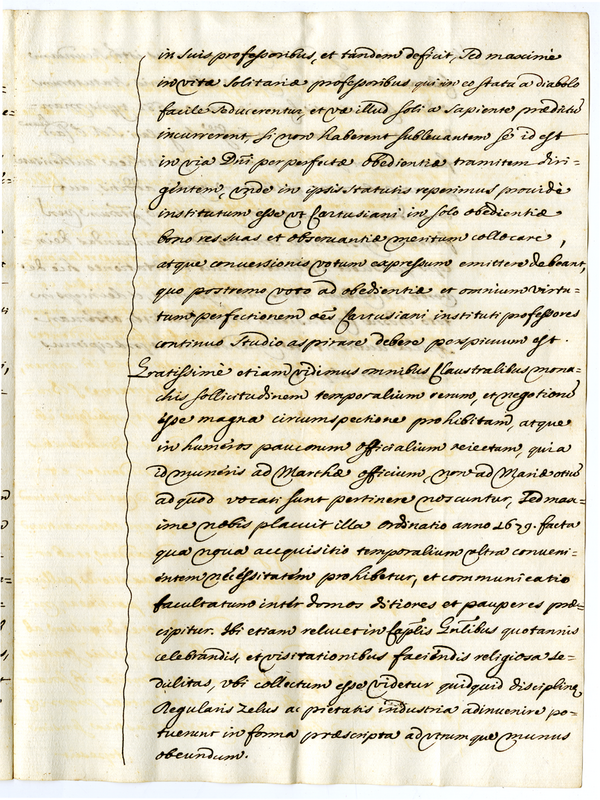 in suis professoribus, et tandem deficit, sed maximè
in vitæ solitariæ professoribus qui in eo statu a diabolo
facile seducerentur, et væ illud soli a Sapiente prædictũ
incurrerent, si non haberent sublevantem se id est
in via Dñi per perfectæ obedientiæ tramitem diri=
gentem, unde in ipsis statutis reperimus providè
institutum esse ut Cartusiani in solo obedientiæ
bono res suas et observantiæ meritum collocare,
atque conversionis votum expressum emittere debeant,
quo postremo voto ad obedientiæ et omnium virtu=
tum perfectionem oẽs Cartusiani instituti professores
continuo studio aspirare debere perspicuum est.
Gratissimè etiam vidimus omnibus Claustralibus mona=
chis sollicitudinem temporalium rerum, et negotiorũ
magna circumspectione prohibitam, atque
in humeros paucorum officialium reiectam, quia
id muneris ad Marthæ officium, non ad Mariæ otiũ
ad quod vocati sunt pertinere noscuntur, sed max=
imè nobis placuit illa ordinatio anno 1679. facta
qua nova acquisitio temporalium ultra conveni=
entem necessitatem prohibetur, et communicatio
facultatum inter domos ditiores et pauperes præ=
cipitur. Ibi etiam relucet in Caplis Gñlibus quotannis
celebrandis, et visitationibus faciendis religiosa se=
dulitas, ubi collectum esse videtur quidquid disciplinæ
Regularis zelus ac pietatis industria adinvenire po=
tuerunt in forma præscripta ad utrumque munus
obeundum.